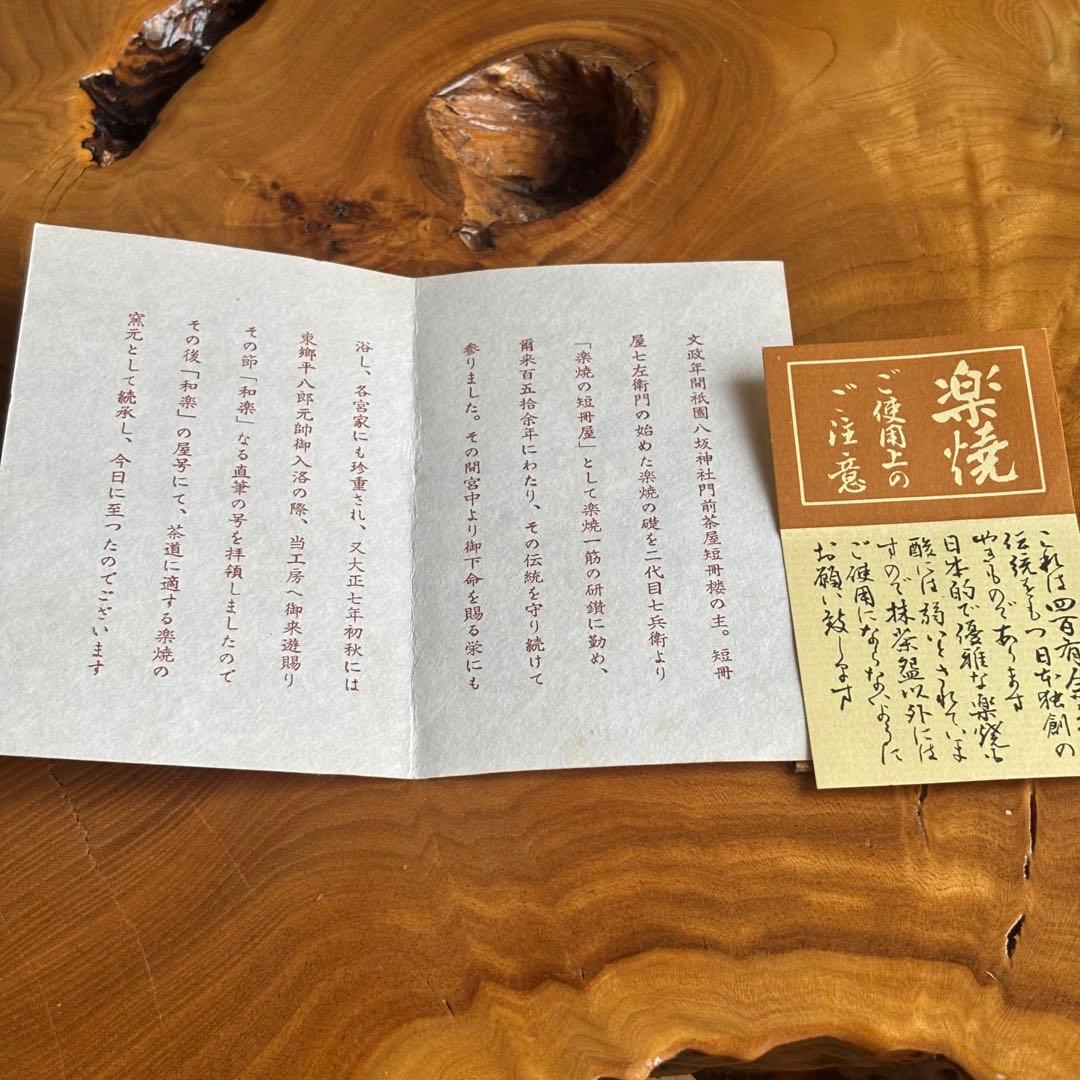 文政年間祇園八坂神社門前茶屋短冊楼の主。短冊
屋七左衛門の始めた楽焼の礎を二代目七兵衛より
「楽焼の短冊屋」として楽焼一筋の研鑽に勤め、
爾来百五拾余年にわたり、その伝統を守り続けて
参りました。その間宮中より御下命を賜る栄にも
浴し、各宮家にも珍重され、又大正七年初秋には
東郷平八郎元帥御入洛の際、当工房へ御来遊賜り
その節「和楽」なる直筆の号を拝領しましたので
その後「和楽」の屋号にて、茶道に適する楽焼の
窯元として続承し、今日に至つたのでございます
楽焼
ご使用上の
ご注意
これは四百有余
伝統をもつ日本独創の
やきものであります
日本的で優雅な楽焼も
酸には弱いとされていま
すので抹茶盌以外には
ご使用にならないように
お願い致します